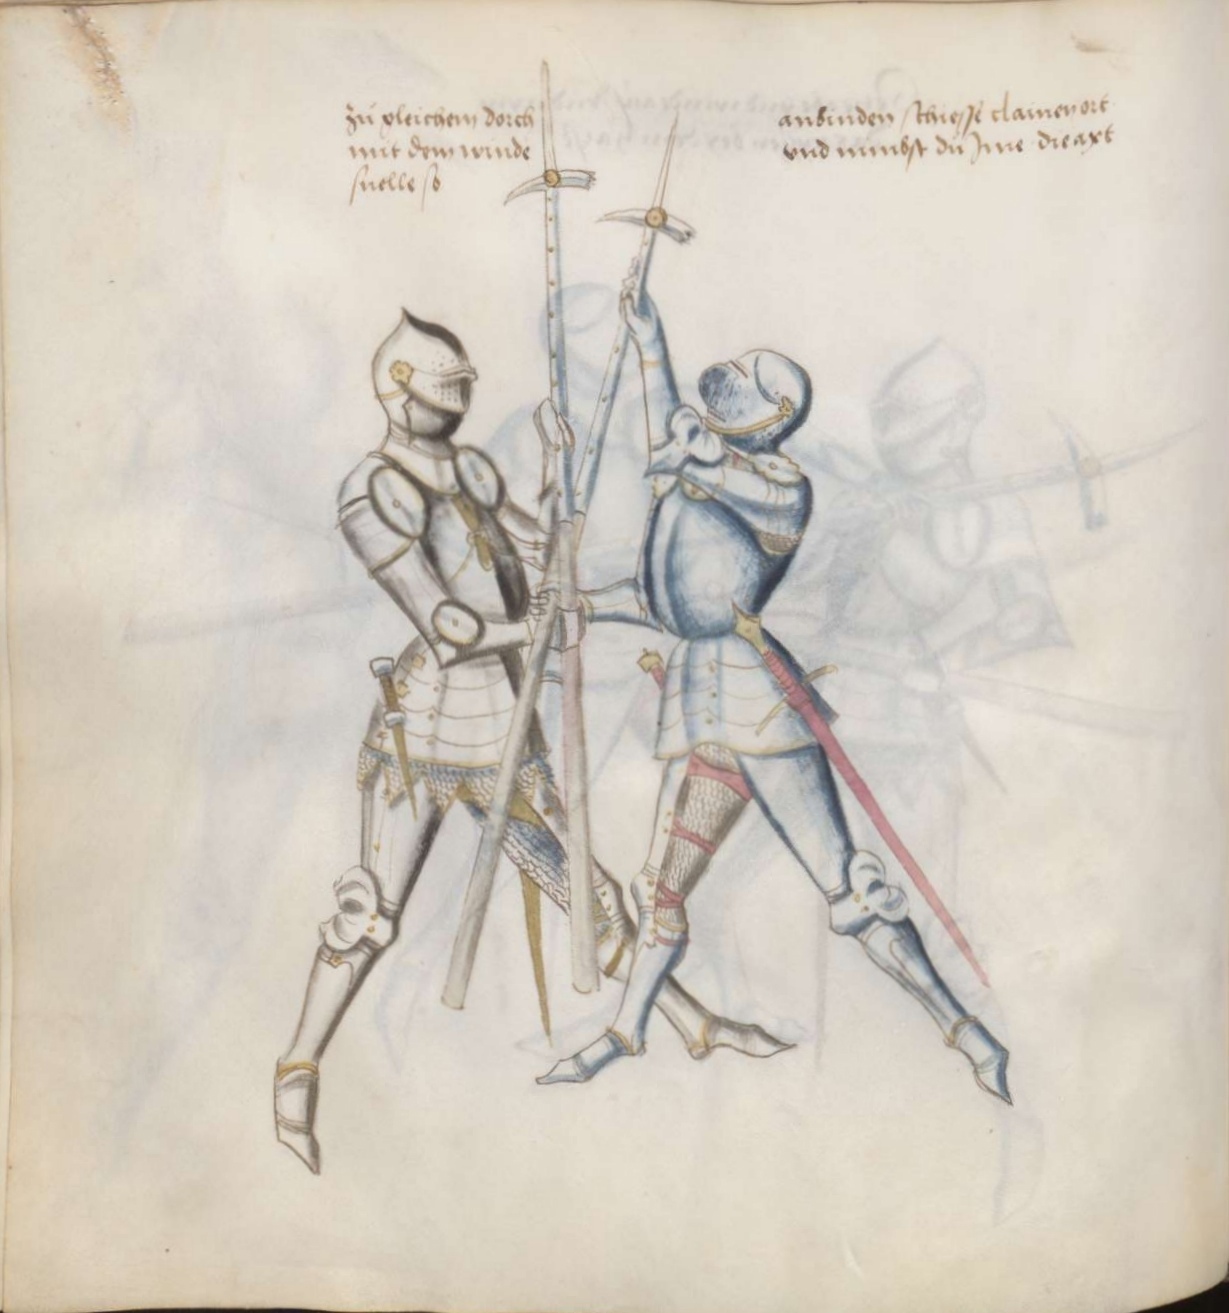 zu gleichem dorch
mit dem winde
snelle so
anbinden schiesse clainen ort
vnd nimbst du Jme die axt